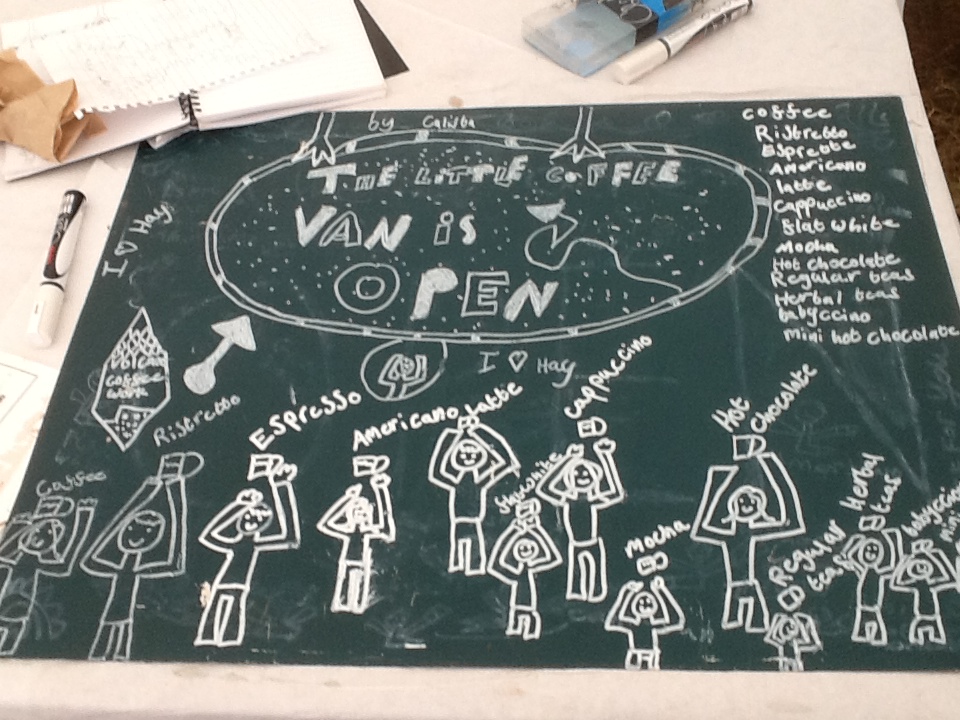 by Calista
THE LITTLE COFFEE
VAN is
OPEN
I ♡ Hay
coffee
Ristretto
Espresso
Americano
latte
Cappuccino
flat white
Mocha
Hot chocolate
Regular teas
Herbal teas
babyccino
Mini hot chocolate
VOLCANO
coffee
work
I ♡ Hay
Coffee
Ristretto
Espresso
Americano
Latte
flat white
cappuccino
Mocha
Hot
chocolate
Regular
teas
Herby
teas
babyccino
mini